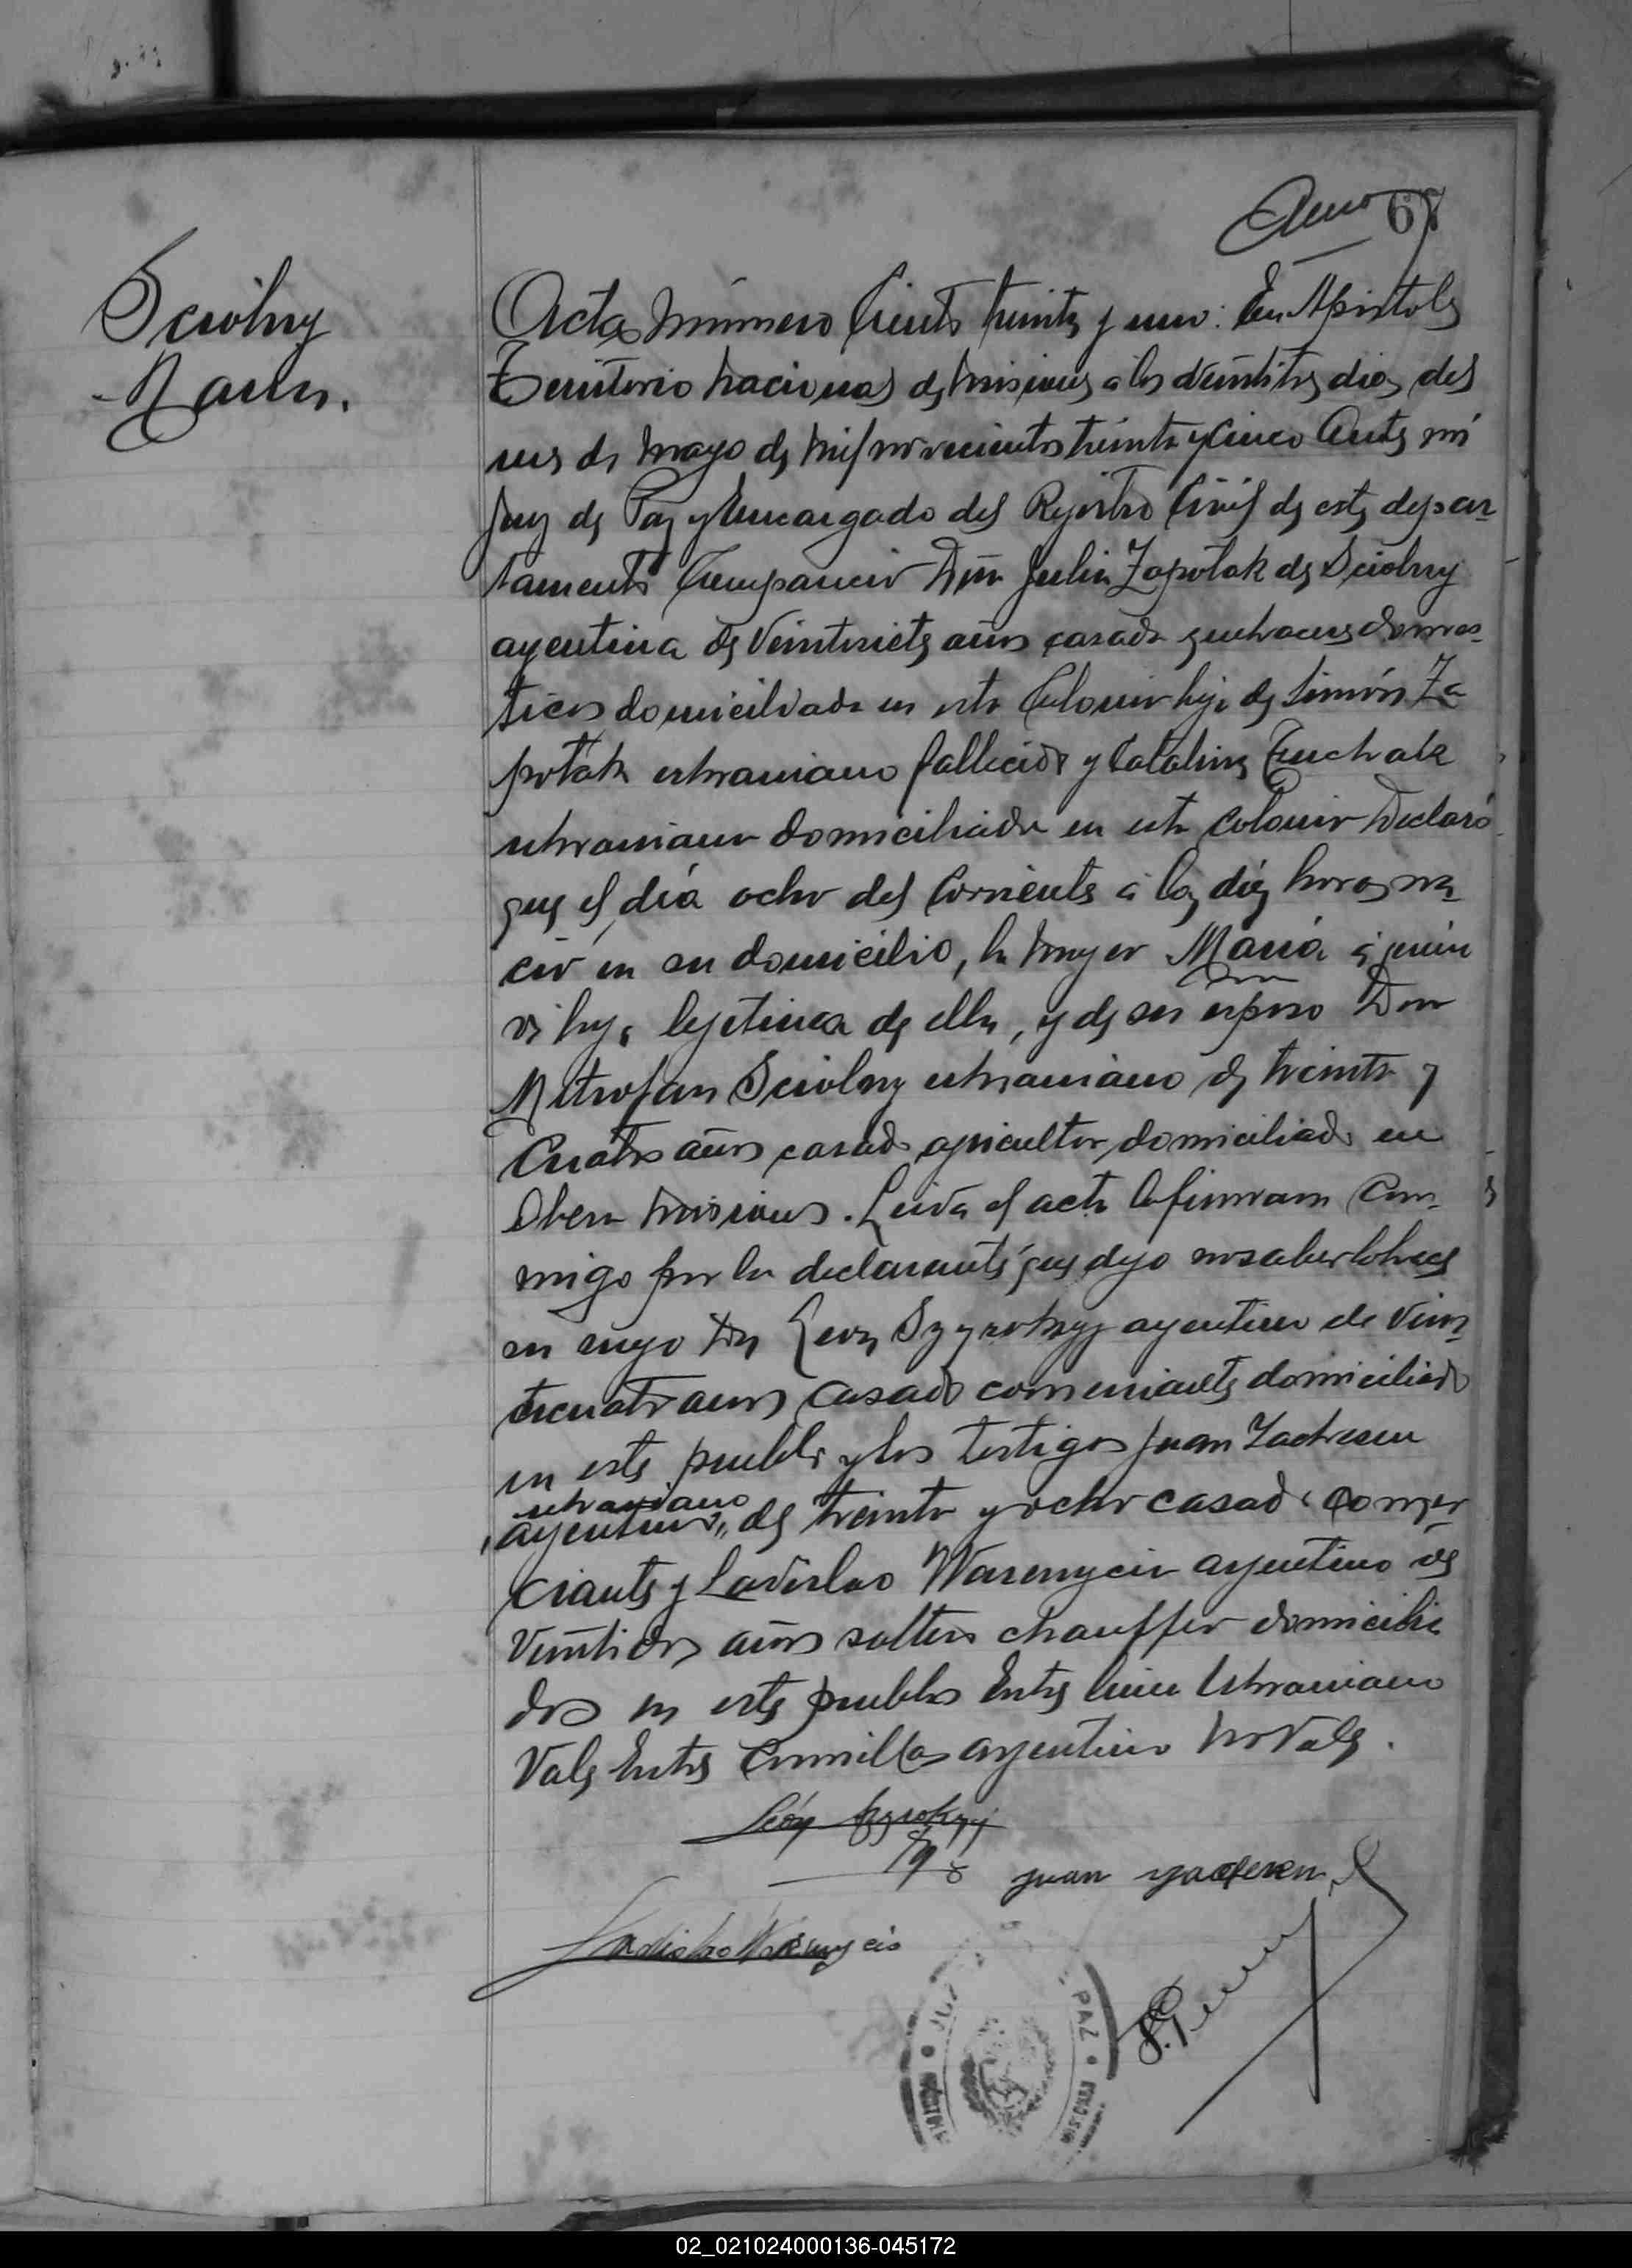 67
Sciolny
Maria.
Acta Número Ciento treinta y uno: En Apóstoles
Territorio Nacional de Misiones a los veintitres dias del
mes de Mayo de Mil novecientos treinta y cinco Ante mí
Juez de Paz y Encargado del Rejistro Civil de este depar-
tamento Compareció Doña Julia Zapotak de Sciolny
argentina de veintisiete años casada quehaceres domes-
ticos domiciliada en esta Colonia hija de Simón Za
potak ukraniano fallecido y Catalina
ukraniana domiciliada en esta colonia Declaró
que el día ocho del corriente á las diez horas na-
ció en su domicilio, la mujer María á quien
es hija lejitima de ella, y de su esposo Don
Mitrofan Sciolny ukraniano de treinta y
cuatro años casado agricultor domiciliado en
Obera Misiones. Leida el acta la firmaron con-
migo por la declarante que dijo no saber lo hace
en ruego Don León Szyrokyj argentino de vein-
ticuatro años casado comerciante domiciliado
en este pueblo y los testigos Juan
ukraniano
argentino,, de treinta y ocho casado comer-
ciante y Ladislao Waremycia argentino de
veintidos años soltero chauffer domicilia
dos en este pueblo Entre linea Ukraniano
Vale Entre Comillas argentino No Vale.
León Szyrokyj
Juan
Ladislao Waremycia
PAZ
02_021024000136-045172